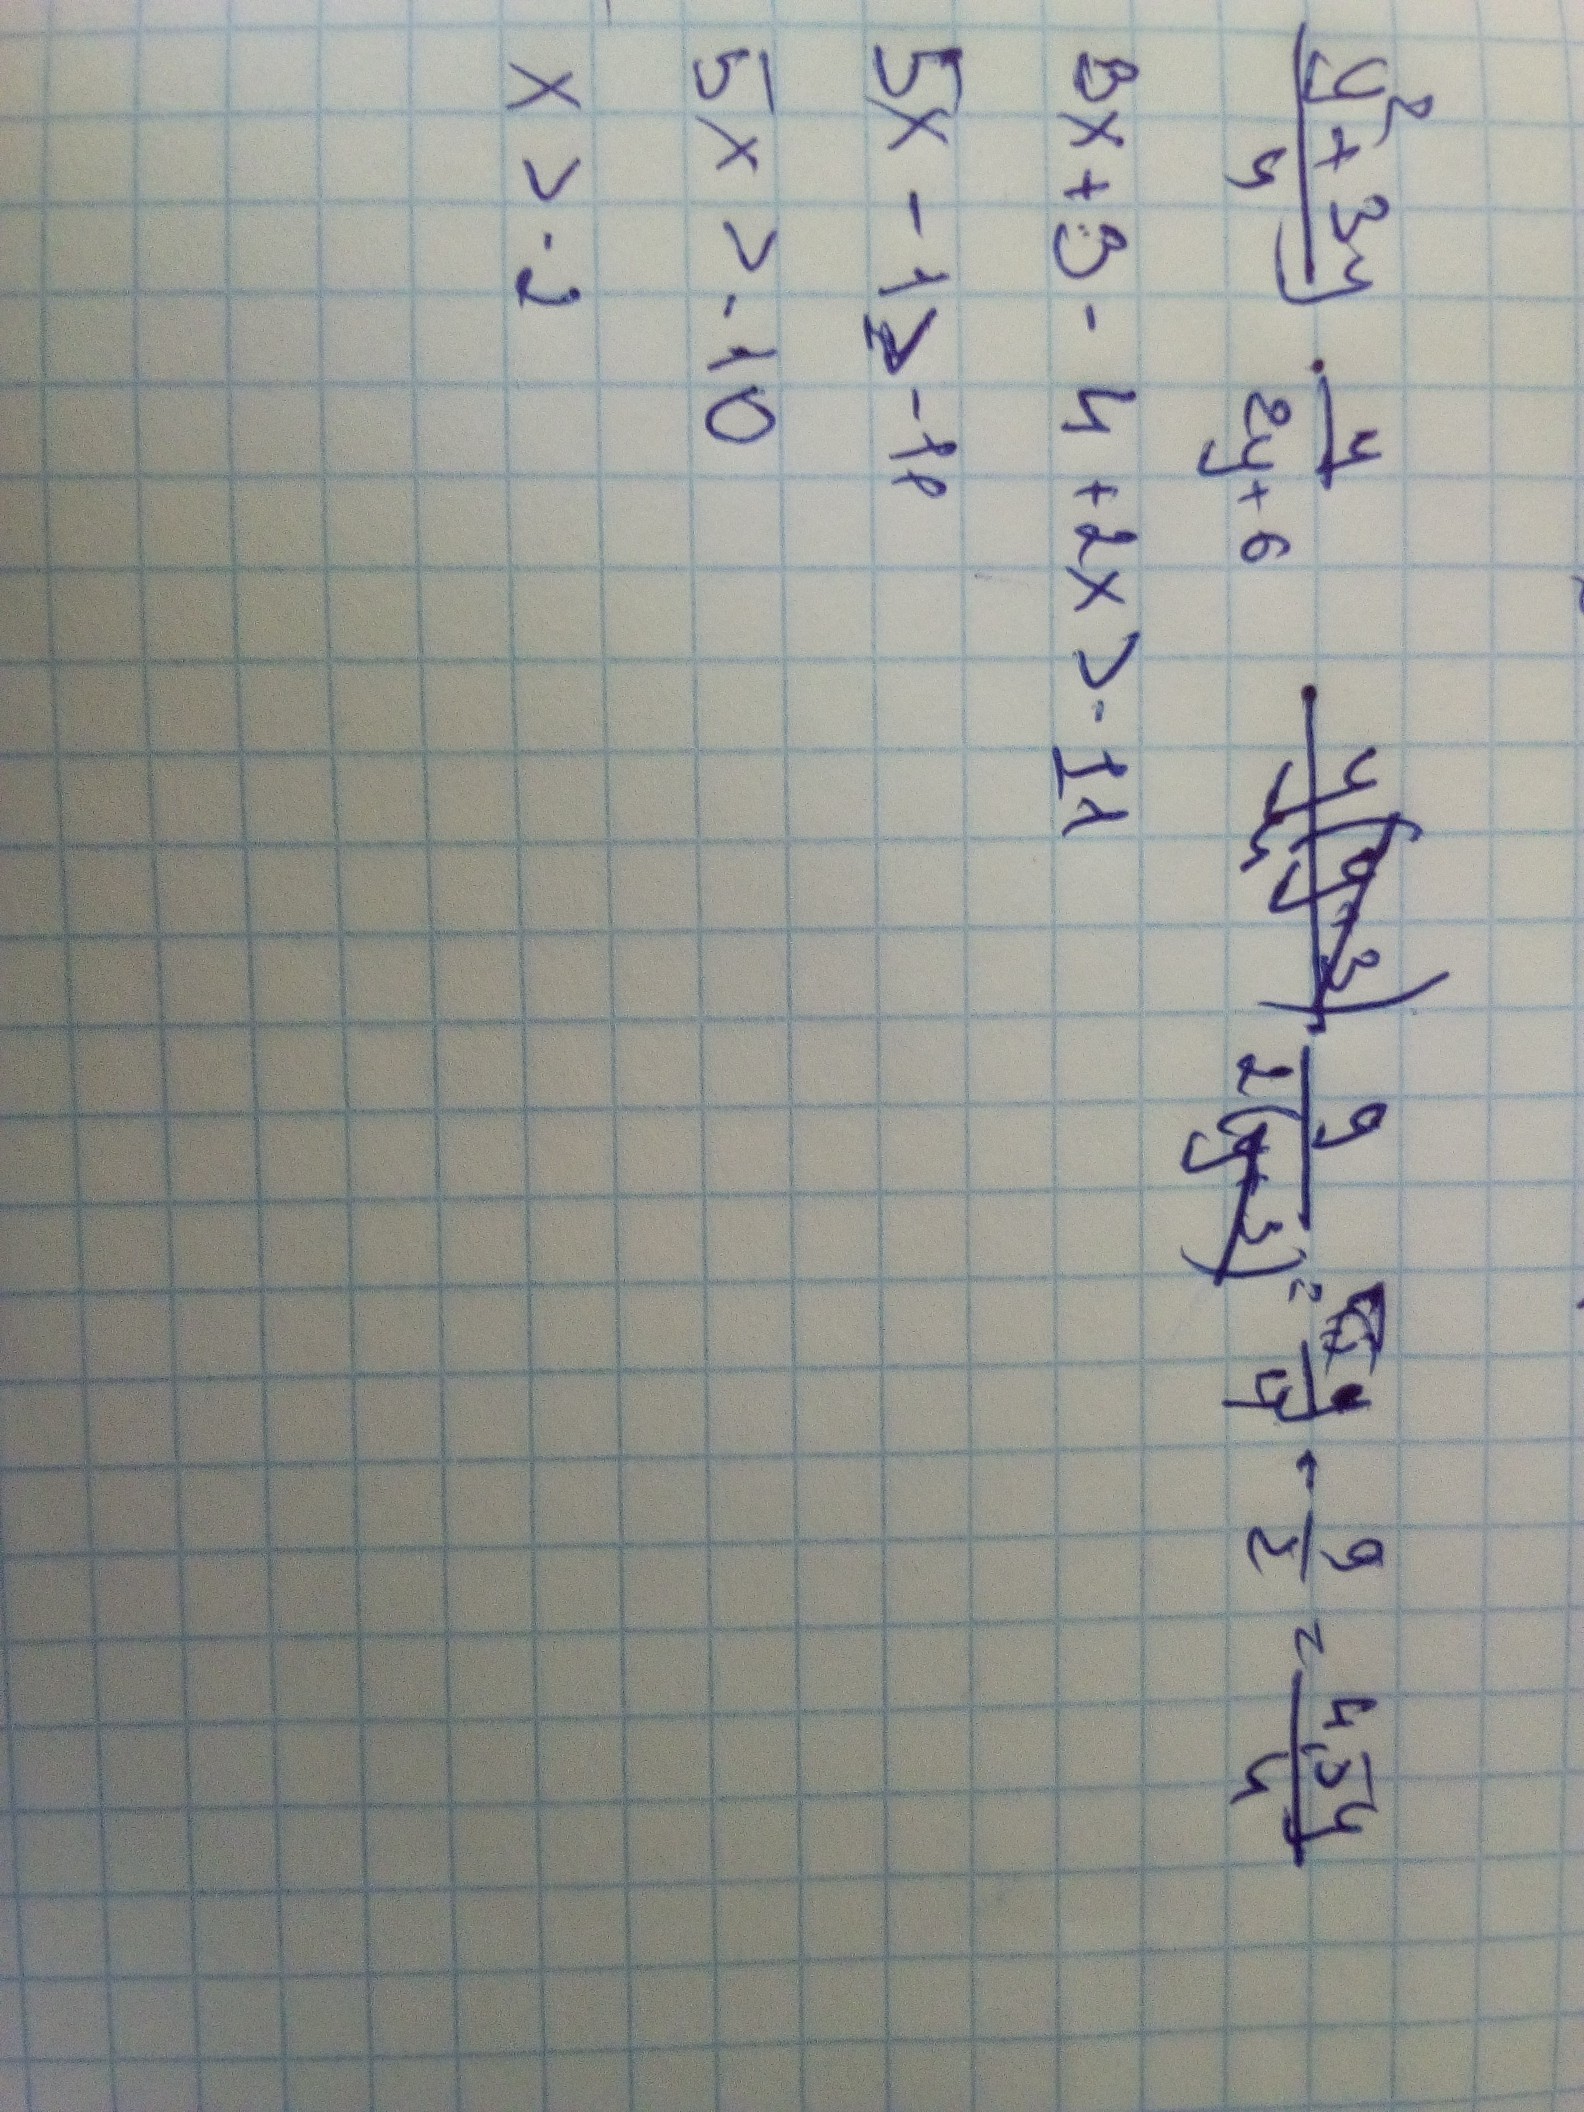 y² + 3y / 4 · 4 / 2y + 6 · y(y+3) / 4 · 9 / 2(y+3) = y / 4 · 9 / 2 = 4,5y / 4
3x + 3 - 4 + 2x > - 11
5x - 1 > - 11
5x > - 10
x > - 2